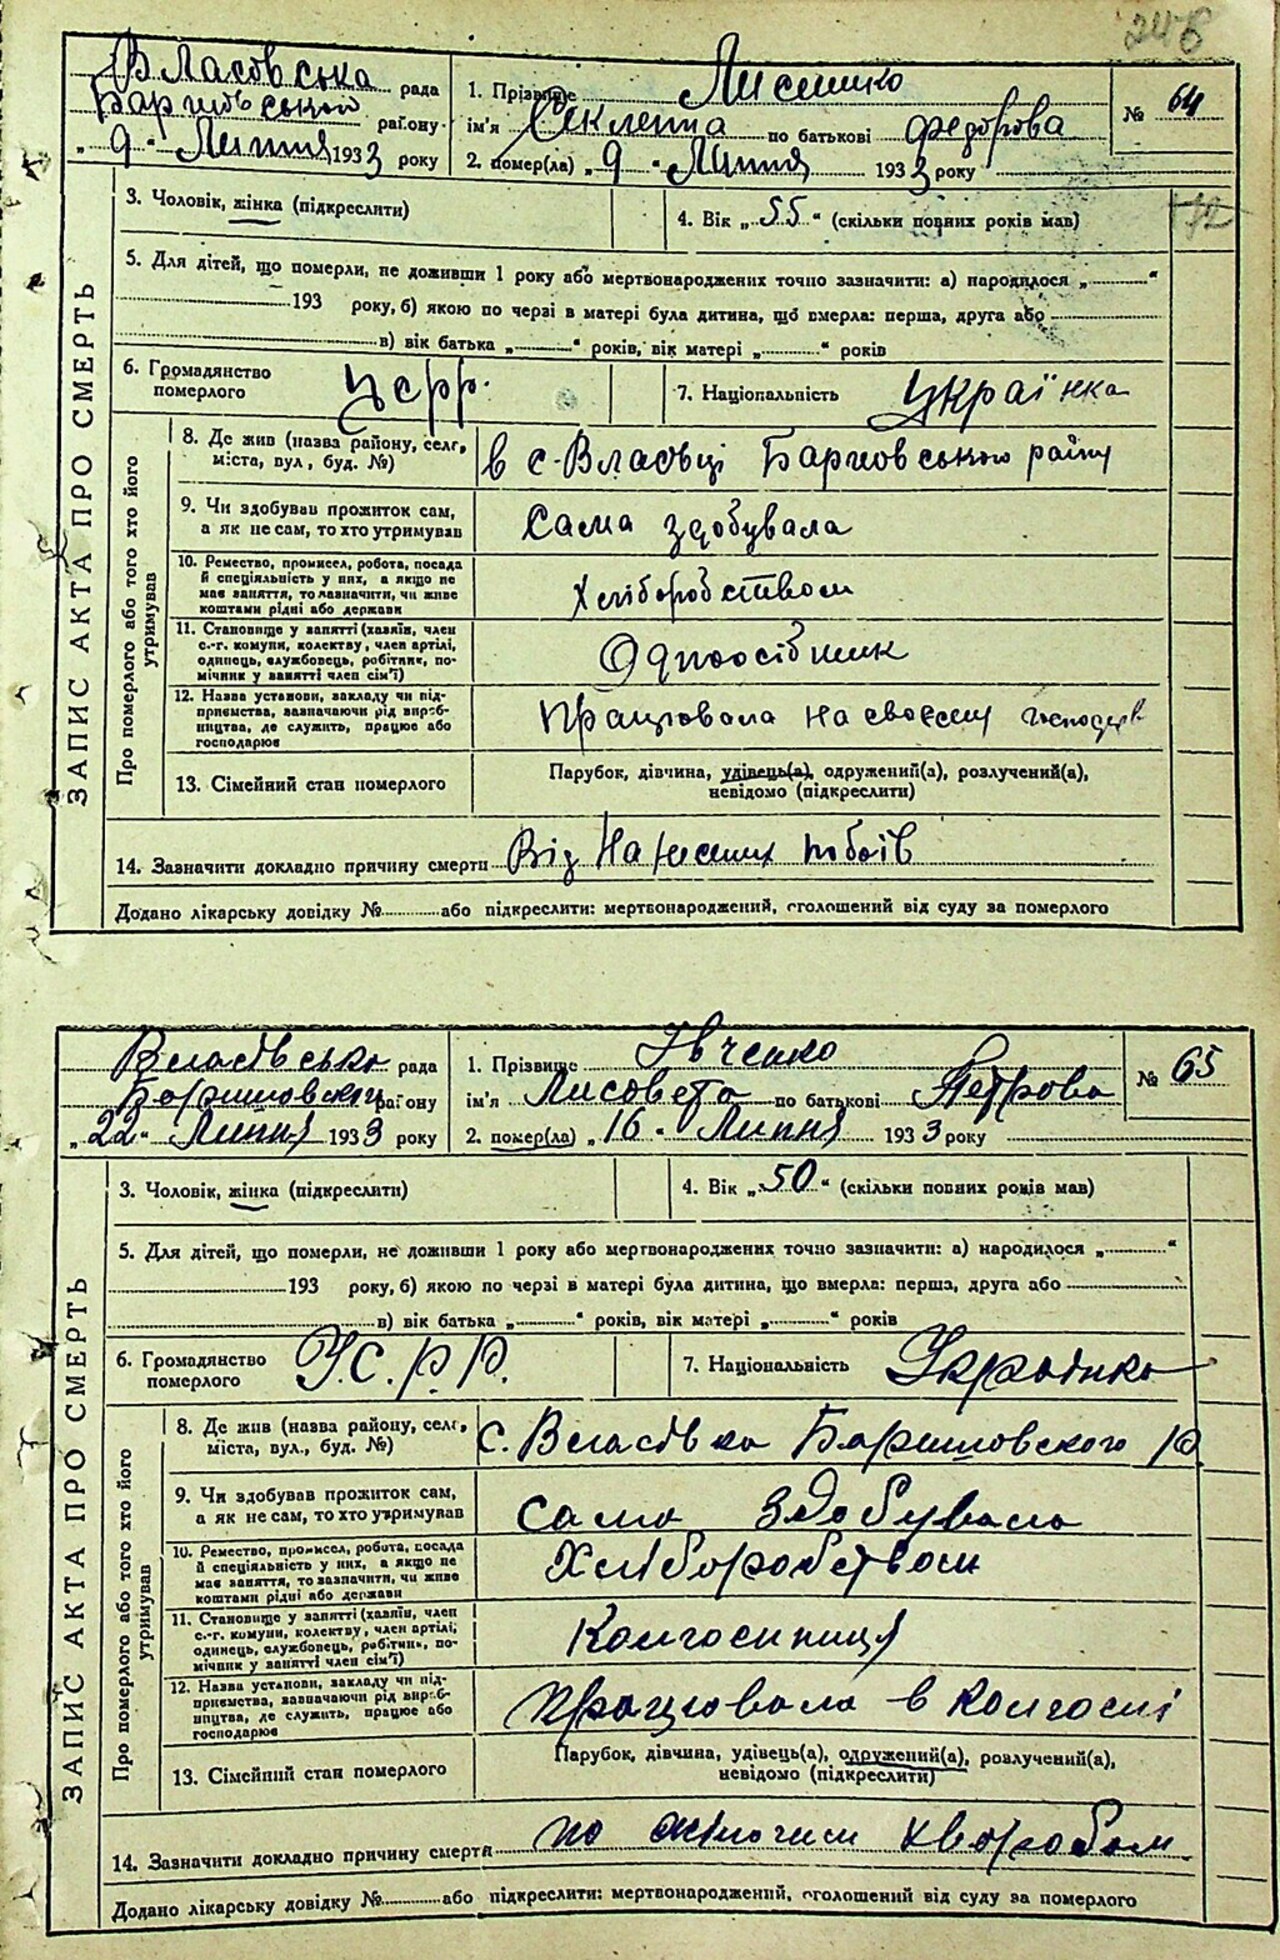 246
Власовська рада
Баришівського району
„ 9 “ Липня 1933 року
1. Прізвище Лисенко
ім'я Секлета по батькові Федорова
2. помер(ла) „ 9 “ Липня 1933 року
№ 64
ЗАПИС АКТА ПРО СМЕРТЬ
3. Чоловік, жінка (підкреслити)
4. Вік „ 55 “ (скільки повних років мав)
5. Для дітей, що померли, не доживши 1 року або мертвонароджених точно зазначити: а) народилося „ “
193 року, б) якою по черзі в матері була дитина, що вмерла: перша, друга або
в) вік батька „ “ років, вік матері „ “ років
6. Громадянство
померлого
УСРР.
7. Національність Українка
Про померлого або того хто його
утримував
8. Де жив (назва району, села,
міста, вул., буд. №)
в с. Власівці Баришовського району
9. Чи здобував прожиток сам,
а як не сам, то хто утримував
Сама здобувала
10. Ремество, промисел, робота, посада
й спеціяльність у них, а якщо не
має заняття, то зазначити, чи живе
коштами рідні або держави
Хліборобством
11. Становище у занятті (хазяїн, член
с.-г. комуни, колективу, член артілі,
одинець, службовець, робітник, по-
мічник у занятті член сім'ї)
Одноосібник
12. Назва установи, закладу чи під-
приємства, зазначаючи рід вироб-
ництва, де служить, працює або
господарює
Працювала на своєму господар
13. Сімейний стан померлого
Парубок, дівчина, удівець(а), одружений(а), розлучений(а),
невідомо (підкреслити)
14. Зазначити докладно причину смерти Від нанесених побоїв
Додано лікарську довідку № або підкреслити: мертвонароджений, оголошений від суду за померлого
Власівсько рада
Баришовський району
„ 22 “ Липня 1933 року
1. Прізвище Івченко
ім'я Лисовета по батькові Петрова
2. помер(ла) „ 16 “ Липня 1933 року
№ 65
ЗАПИС АКТА ПРО СМЕРТЬ
3. Чоловік, жінка (підкреслити)
4. Вік „ 50 “ (скільки повних років мав)
5. Для дітей, що померли, не доживши 1 року або мертвонароджених точно зазначити: а) народилося „ “
193 року, б) якою по черзі в матері була дитина, що вмерла: перша, друга або
в) вік батька „ “ років, вік матері „ “ років
6. Громадянство
померлого
У.С.Р.Р.
7. Національність Українка
Про померлого або того хто його
утримував
8. Де жив (назва району, села,
міста, вул., буд. №)
с. Власівка Баришовского р.
9. Чи здобував прожиток сам,
а як не сам, то хто утримував
сама здобувала
10. Ремество, промисел, робота, посада
й спеціяльність у них, а якщо не
має заняття, то зазначити, чи живе
коштами рідні або держави
Хліборобством
11. Становище у занятті (хазяїн, член
с.-г. комуни, колективу, член артілі,
одинець, службовець, робітник, по-
мічник у занятті член сім'ї)
Колгоспниця
12. Назва установи, закладу чи під-
приємства, зазначаючи рід вироб-
ництва, де служить, працює або
господарює
Працювала в колгоспі
13. Сімейний стан померлого
Парубок, дівчина, удівець(а), одружений(а), розлучений(а),
невідомо (підкреслити)
14. Зазначити докладно причину смерти по жіночим хворобам
Додано лікарську довідку № або підкреслити: мертвонароджений, оголошений від суду за померлого